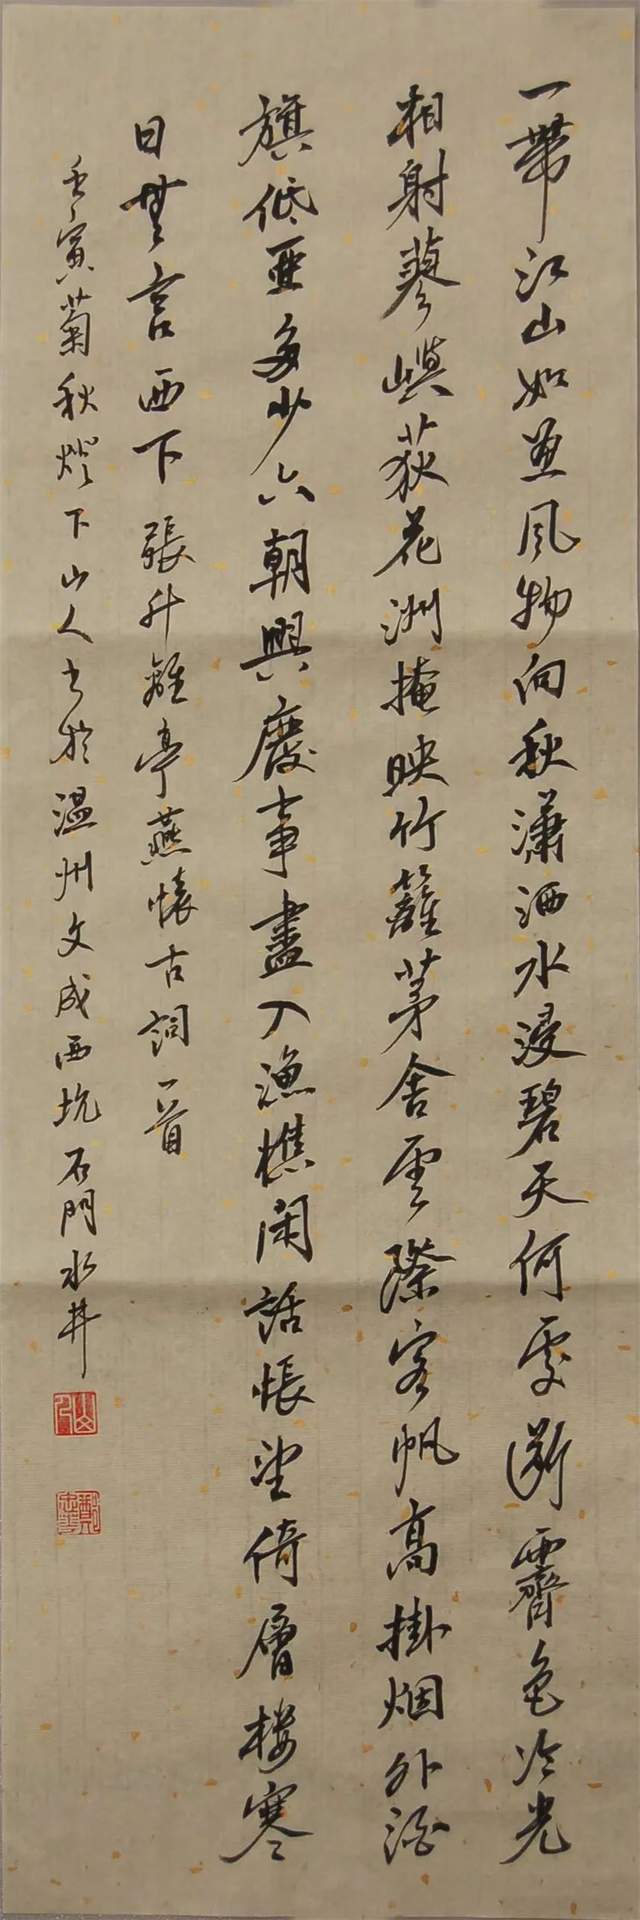 一帶江山如畫風物向秋瀟洒水浸碧天何處斷霽色冷光
相射蓼嶼荻花洲掩映竹籬茅舍雲際客帆高掛烟外酒
旗低亞多少六朝興廢事盡入漁樵閑話悵望倚層樓寒
日無言西下 張升離亭燕懷古詞一首
壬寅菊秋燈下山人書於温州文成西坑石門水井